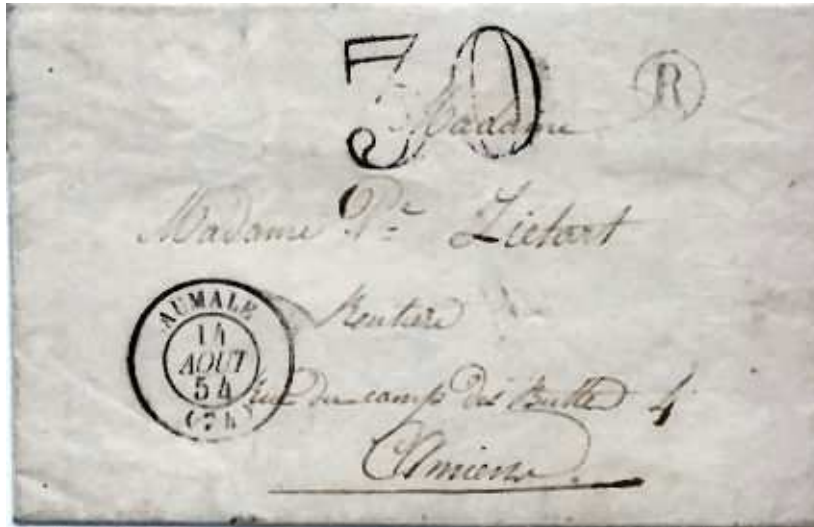 30
R
Madame
Madame Ve Lietart
Rentière
AUMALE
14
AOUT
54
(74)
rue du camp des Buttes 4
Amiens